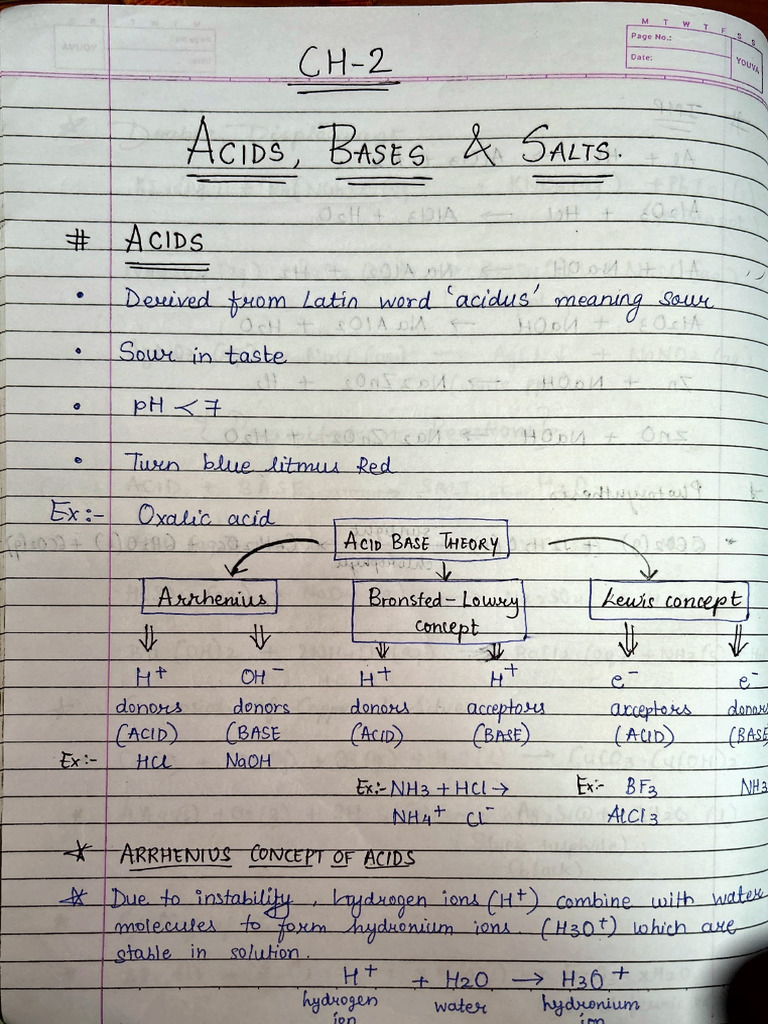 M T W T F S S
Page No.:
Date:
YOUVA
CH-2
ACIDS, BASES & SALTS.
# ACIDS
• Derived from Latin word 'acidus' meaning sour
• Sour in taste
• pH < 7
• Turn blue litmus Red
Ex:- Oxalic acid
ACID BASE THEORY
Arrhenius Bronsted-Lowry concept Lewis concept
H+ OH- H+ H+ e- e-
donors donors donors acceptors acceptors donors
(ACID) (BASE (ACID) (BASE) (ACID) (BASE
Ex:- HCl NaOH
Ex:- NH3 + HCl → Ex:- BF3 NH3
NH4+ Cl- AlCl3
* ARRHENIUS CONCEPT OF ACIDS
* Due to instability, hydrogen ions (H+) combine with water
molecules to form hydronium ions. (H3O+) which are
stable in solution.
H+ + H2O → H3O+
hydrogen water hydronium
ion ion